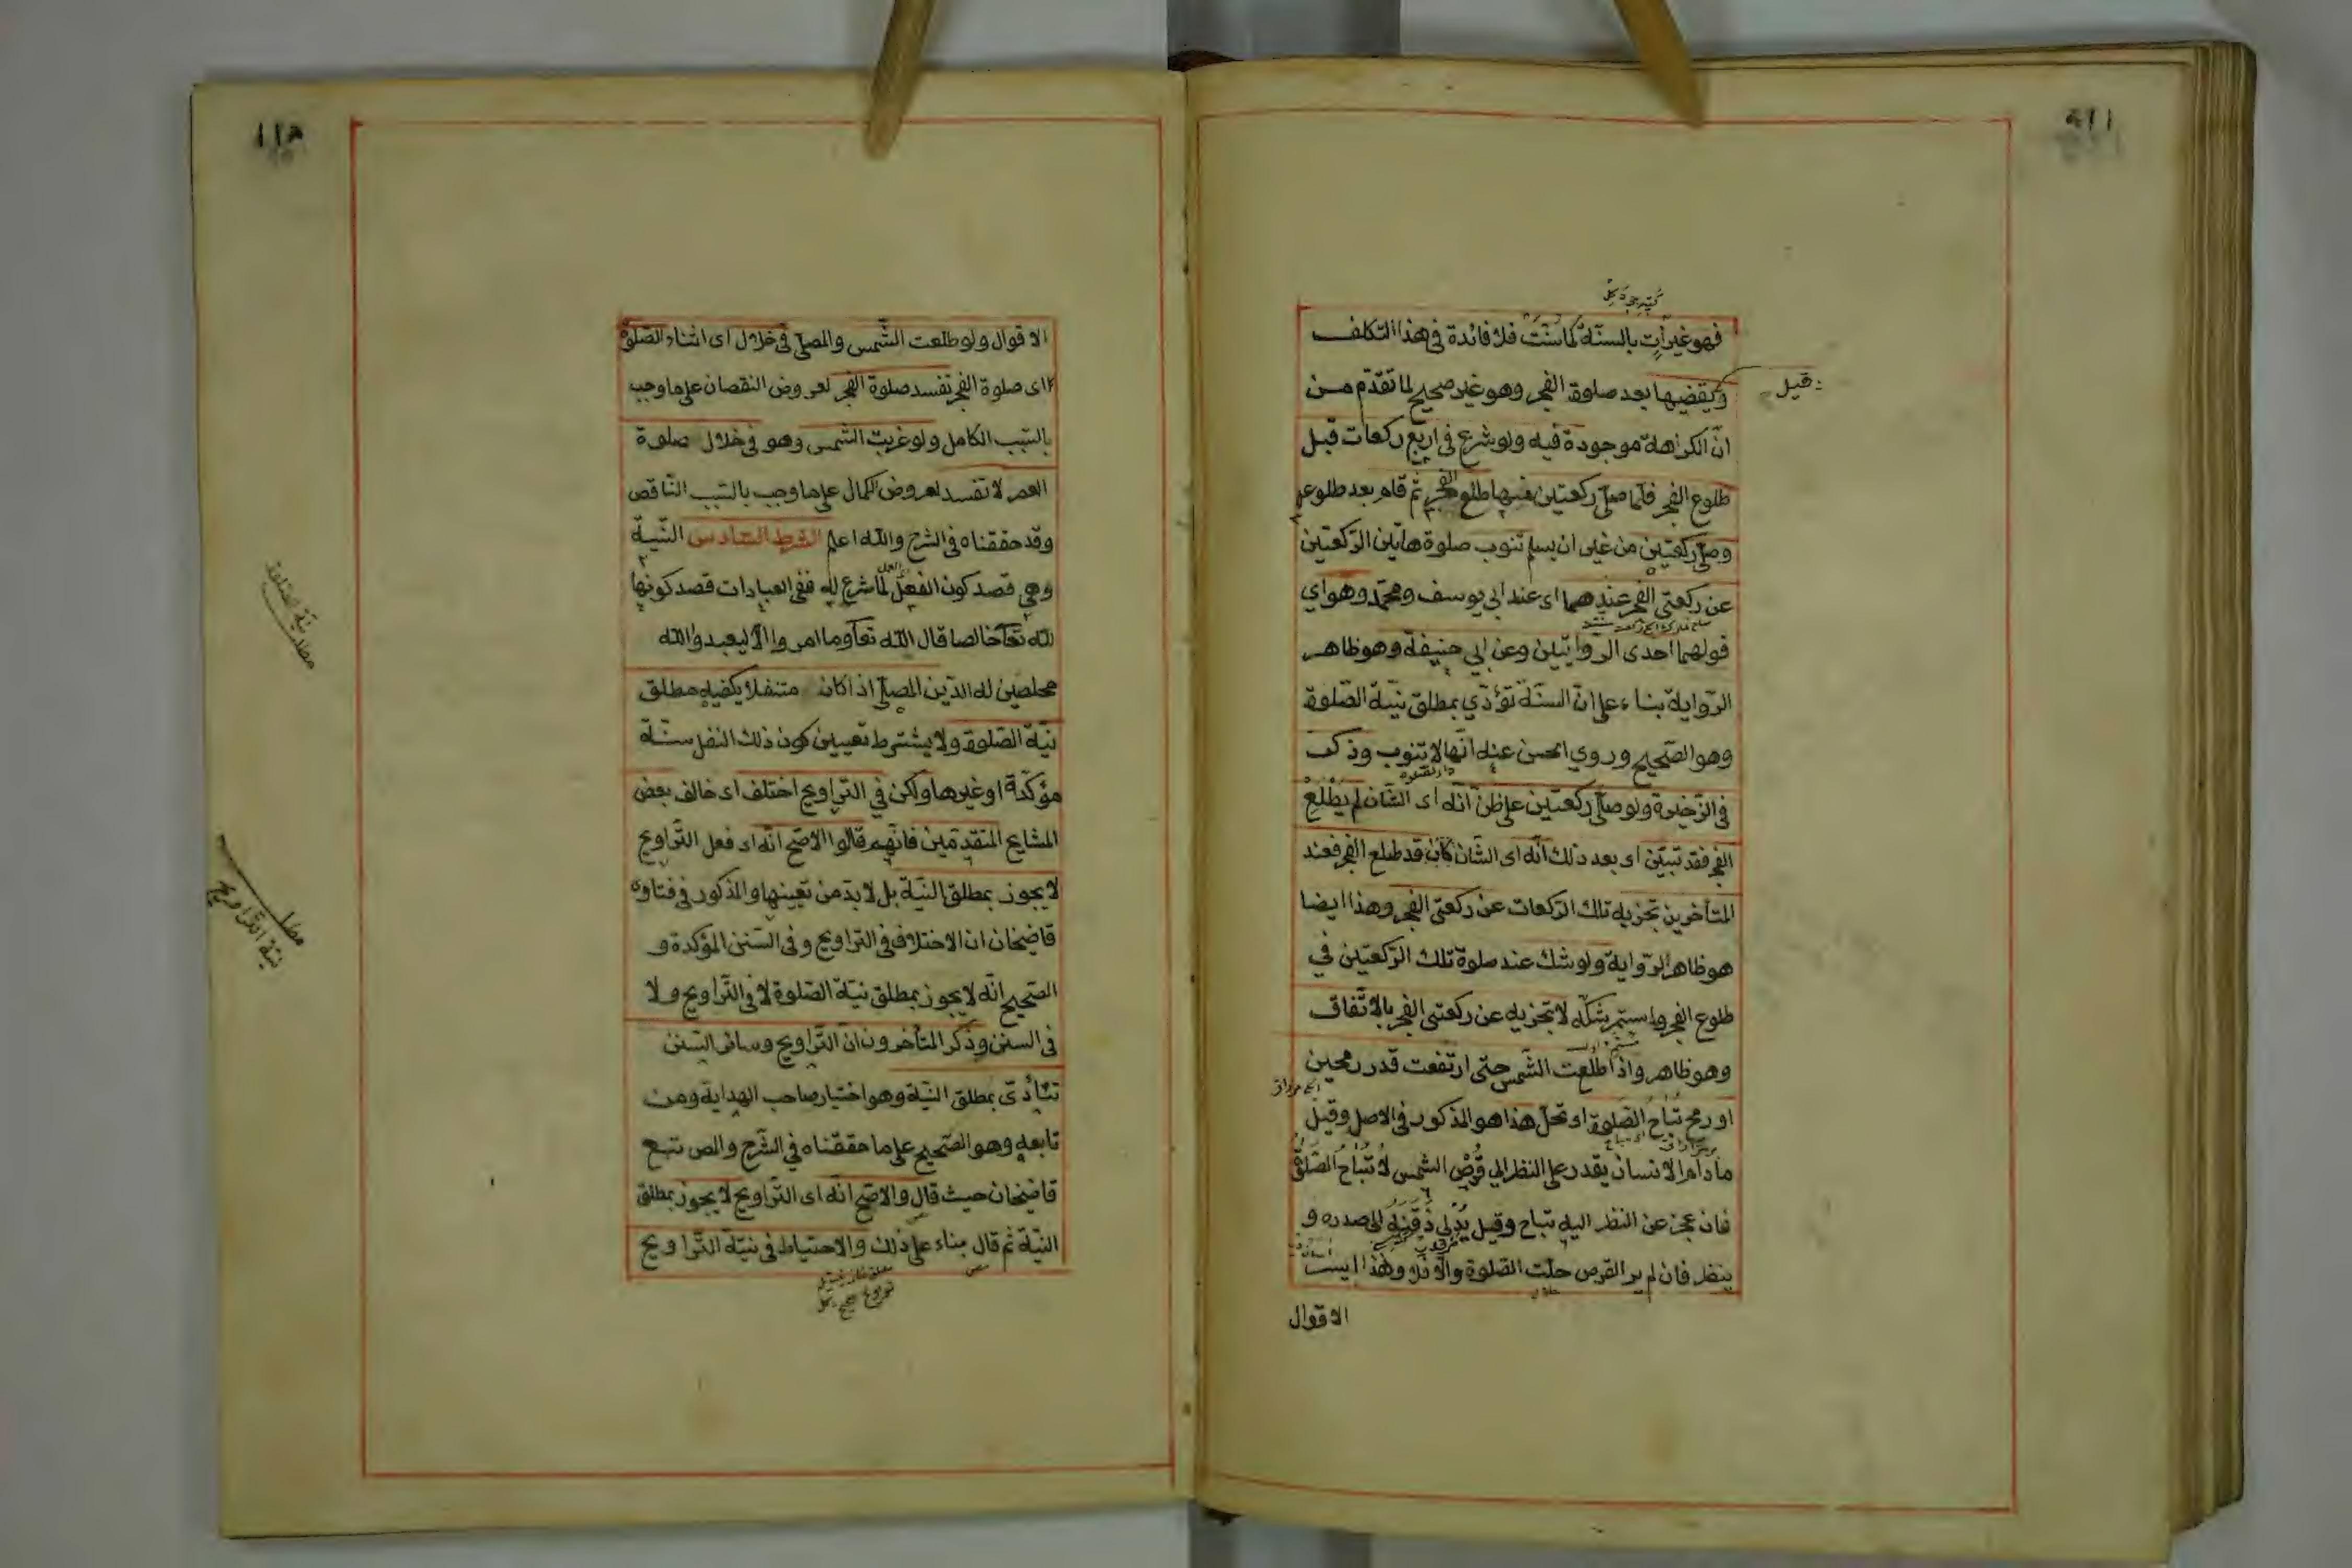 فهو غير آت بالسنة كما سنت فلا فائدة في هذا التكلف
قيل
ويقضيها بعد صلوة الفجر وهو غير صحيح لما تقدم من
ان الكراهة موجودة فيه ولو شرع في اربع ركعات قبل
طلوع الفجر فلما صلى ركعتين منها طلع الفجر ثم قام بعد طلوعه
وصلى ركعتين من غير ان يسلم تنوب صلوة هاتين الركعتين
عن ركعتي الفجر عندهما اى عند ابي يوسف ومحمد وهو اي
قولهما احدى الروايتين وعن ابي حنيفة وهو ظاهر
الرواية بناء على ان السنة تؤدي بمطلق نية الصلوة
وهو الصحيح وروي الحسن عنه انها لا تنوب وذكر
في الذخيرة ولو صلى ركعتين على ظن انه اى الشان لم يطلع
الفجر فقد تبين اى بعد ذلك انه اى الشان كان قد طلع الفجر فعند
المتأخرين تجزيه تلك الركعات عن ركعتي الفجر وهذا ايضا
هو ظاهر الرواية ولو شك عند صلوة تلك الركعتين في
طلوع الفجر واستمر شكه لا تجزيه عن ركعتي الفجر بالاتفاق
وهو ظاهر واذا طلعت الشمس حتى ارتفعت قدر رمحين
او رمح تباح الصلوة اى تحل هذا هو المذكور في الاصل وقيل
ما دام الانسان يقدر على النظر الي قرص الشمس لا تباح الصلوة
فان عجز عن النظر اليه تباح وقيل يدلي ذقنه الى صدره و
ينظر فان لم ير القرص حلت الصلوة والا فلا وهذا ايسر
الاقوال
الاقوال ولو طلعت الشمس والمصلي في خلال اى اثناء الصلوة
اى صلوة الفجر تفسد صلوة الفجر لعروض النقصان على ما وجب
بالسبب الكامل ولو غربت الشمس وهو في خلال صلوة
العصر لا تفسد لعروض الكمال على ما وجب بالسبب الناقص
وقد حققناه في الشرح والله اعلم الشرط السادس النية
وهي قصد كون الفعل لما شرع له ففي العبادات قصد كونها
لله تعالى خالصا قال الله تعا وما امروا الا ليعبدوا الله
مخلصين له الدين المصلي اذا كان متنفلا يكفيه مطلق
نية الصلوة ولا يشترط تعيين كون ذلك النفل سنة
مؤكدة او غيرها ولكن في التراويح اختلف اى خالف بعض
المشايخ المتقدمين فانهم قالوا الاصح انه اى فعل التراويح
لا يجوز بمطلق النية بل لا بد من تعيينها والمذكور في فتاوى
قاضيخان ان الاختلاف في التراويح وفي السنن المؤكدة و
الصحيح انه لا يجوز بمطلق نية الصلوة لا في التراويح ولا
في السنن وذكر المتأخرون ان التراويح وسائر السنن
تتأدى بمطلق النية وهو اختيار صاحب الهداية ومن
تابعه وهو الصحيح على ما حققناه في الشرح والمص تبع
قاضيخان حيث قال والاصح انه اى التراويح لا يجوز بمطلق
النية ثم قال بناء على ذلك والاحتياط في نية التراويح
مطلب نية الصلوة
مطلب
نية التراويح